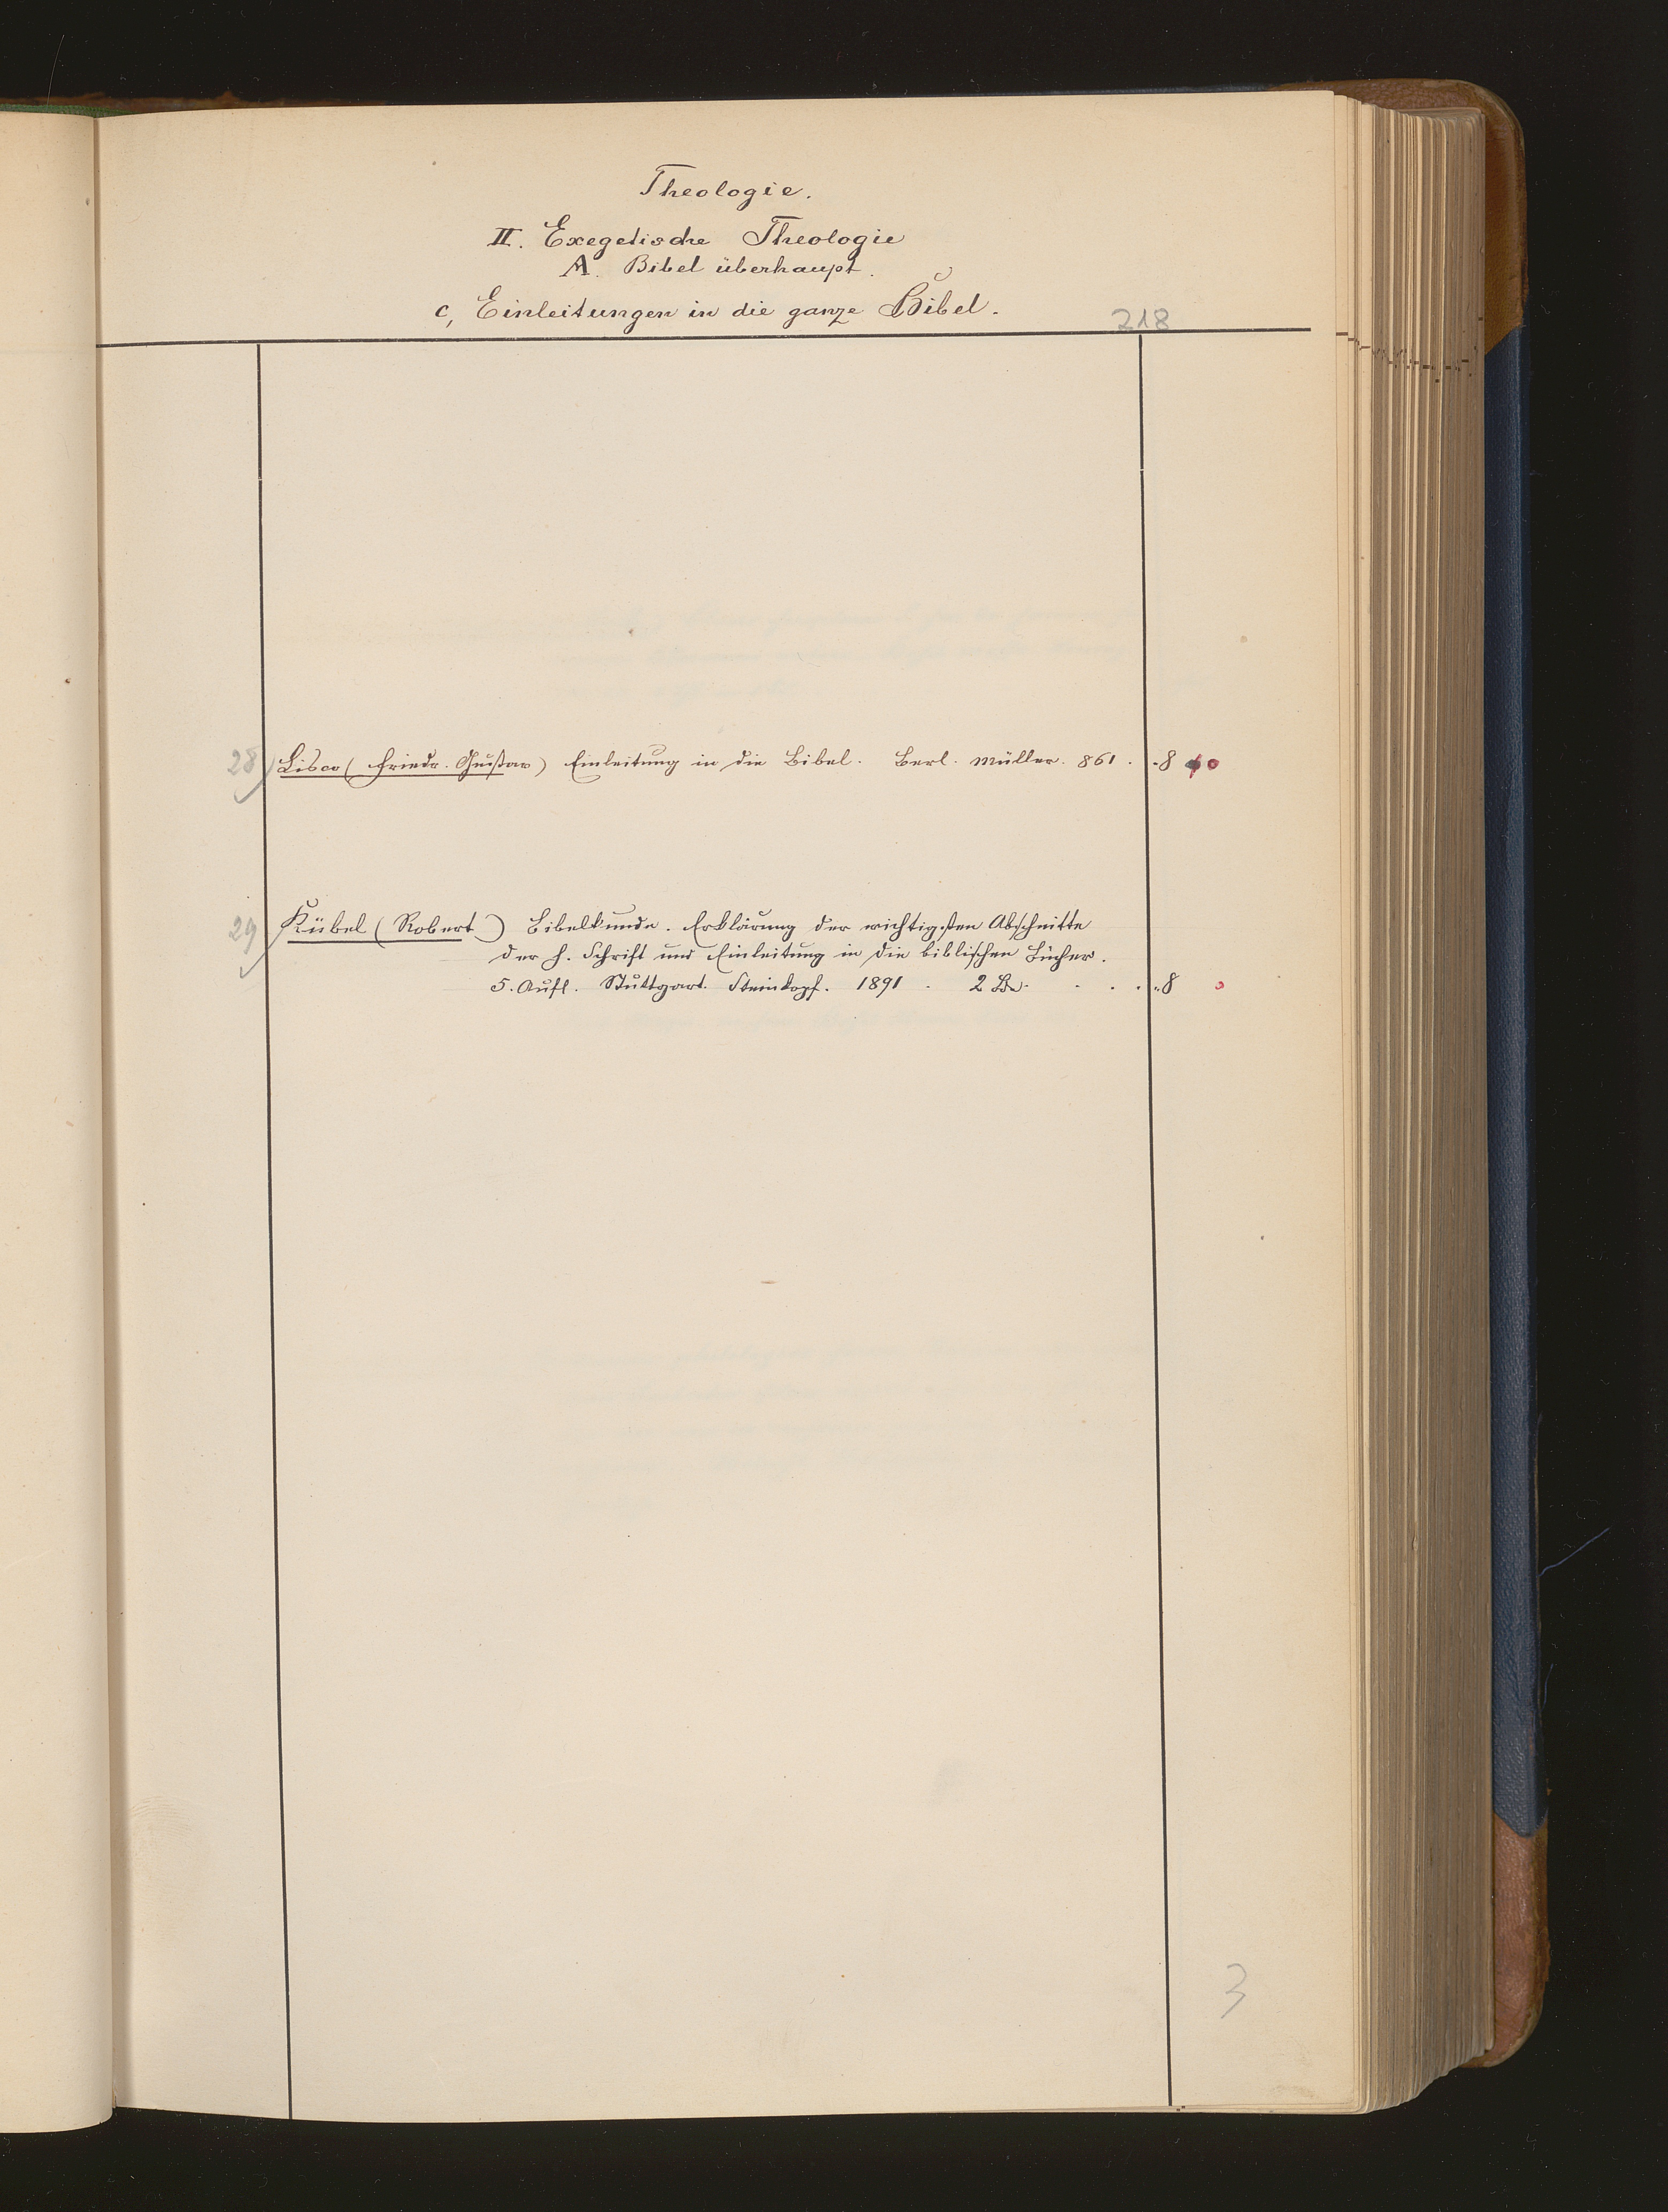 Theologie.
II. Exegetische Theologie
A. Bibel überhaupt.
c, Einleitungen in die ganze Bibel.
218
28 Lisco (Friedr. Gustav) Einleitung in die Bibel. Berl. Müller. 861. 8
29 Kübel (Robert) Bibelkunde. Erklärung der wichtigsten Abschnitte
der h. Schrift und Einleitung in die biblischen Bücher.
5. Aufl. Stuttgart. Steinkopf. 1891. 2 Bde. . . . 8
3